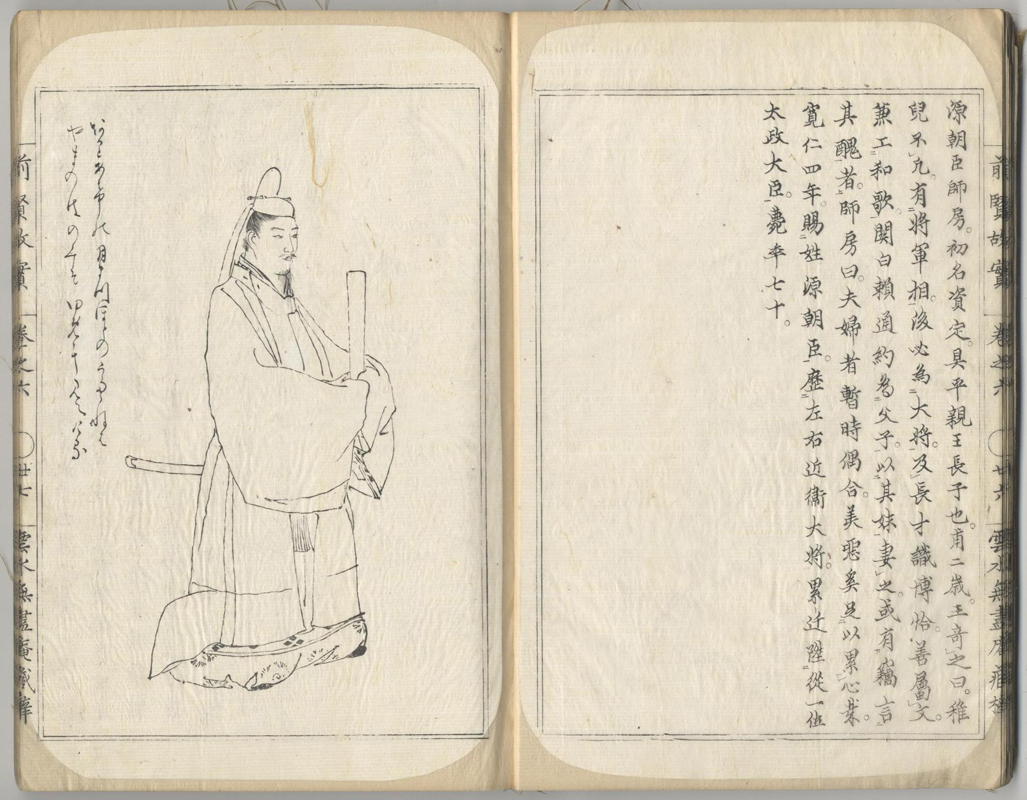 源朝臣師房。初名資定。具平親王長子也。甫二歳。王奇之曰。稚
兒不凡。有將軍相。後必為大將。及長才識博洽。善屬文。
兼工和歌。関白頼通約為父子。以其妹妻之。或有竊言
其醜者。師房曰。夫婦者暫時偶合。美惡奚足以累心哉。
寛仁四年。賜姓源朝臣。歴左右近衛大將。累迁陞從一位
太政大臣。薨年七十。
前賢故實 巻之六 ○ 廿六 雲水無盡庵藏梓
前賢故實 巻之六 ○ 廿七 雲水無盡庵藏梓